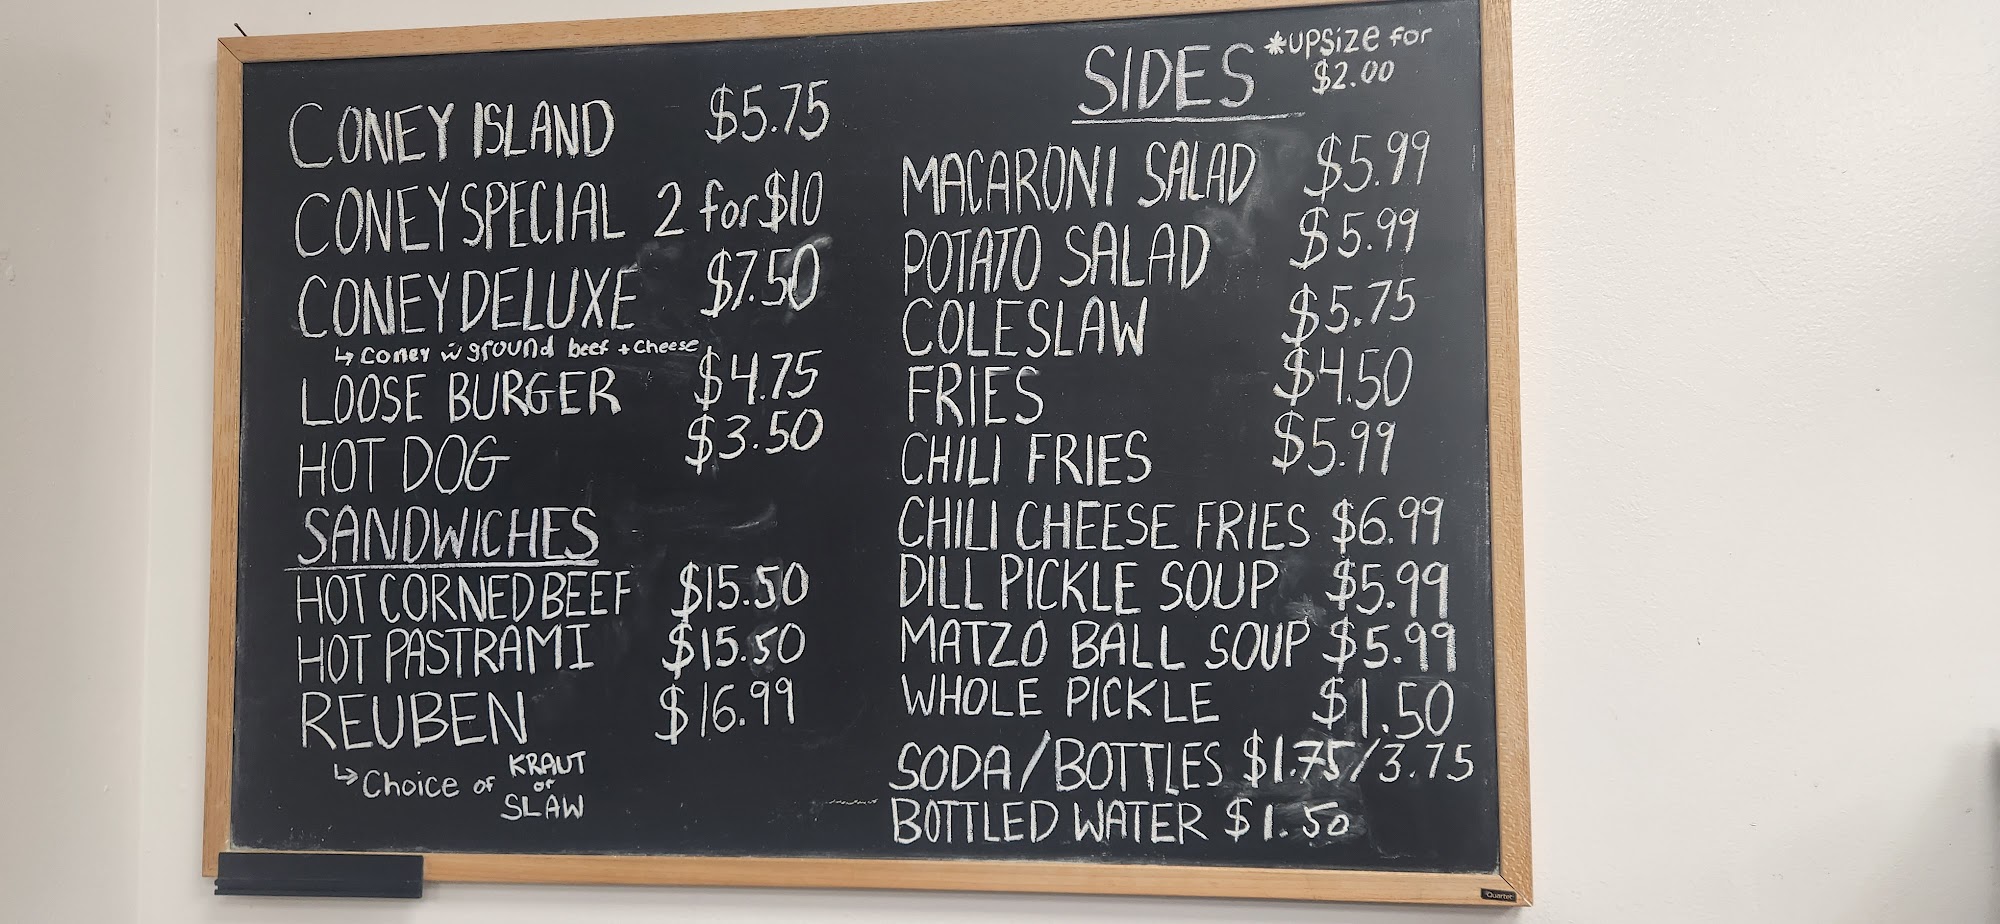 CONEY ISLAND $5.75
CONEY SPECIAL 2 for $10
CONEY DELUXE $7.50
↳ Coney w ground beef + Cheese
LOOSE BURGER $4.75
HOT DOG $3.50
SANDWICHES
HOT CORNED BEEF $15.50
HOT PASTRAMI $15.50
REUBEN $16.99
↳ Choice of KRAUT
or
SLAW
SIDES *UPSIZE for
$2.00
MACARONI SALAD $5.99
POTATO SALAD $5.99
COLESLAW $5.75
FRIES $4.50
CHILI FRIES $5.99
CHILI CHEESE FRIES $6.99
DILL PICKLE SOUP $5.99
MATZO BALL SOUP $5.99
WHOLE PICKLE $1.50
SODA/BOTTLES $1.75/3.75
BOTTLED WATER $1.50
Quartet